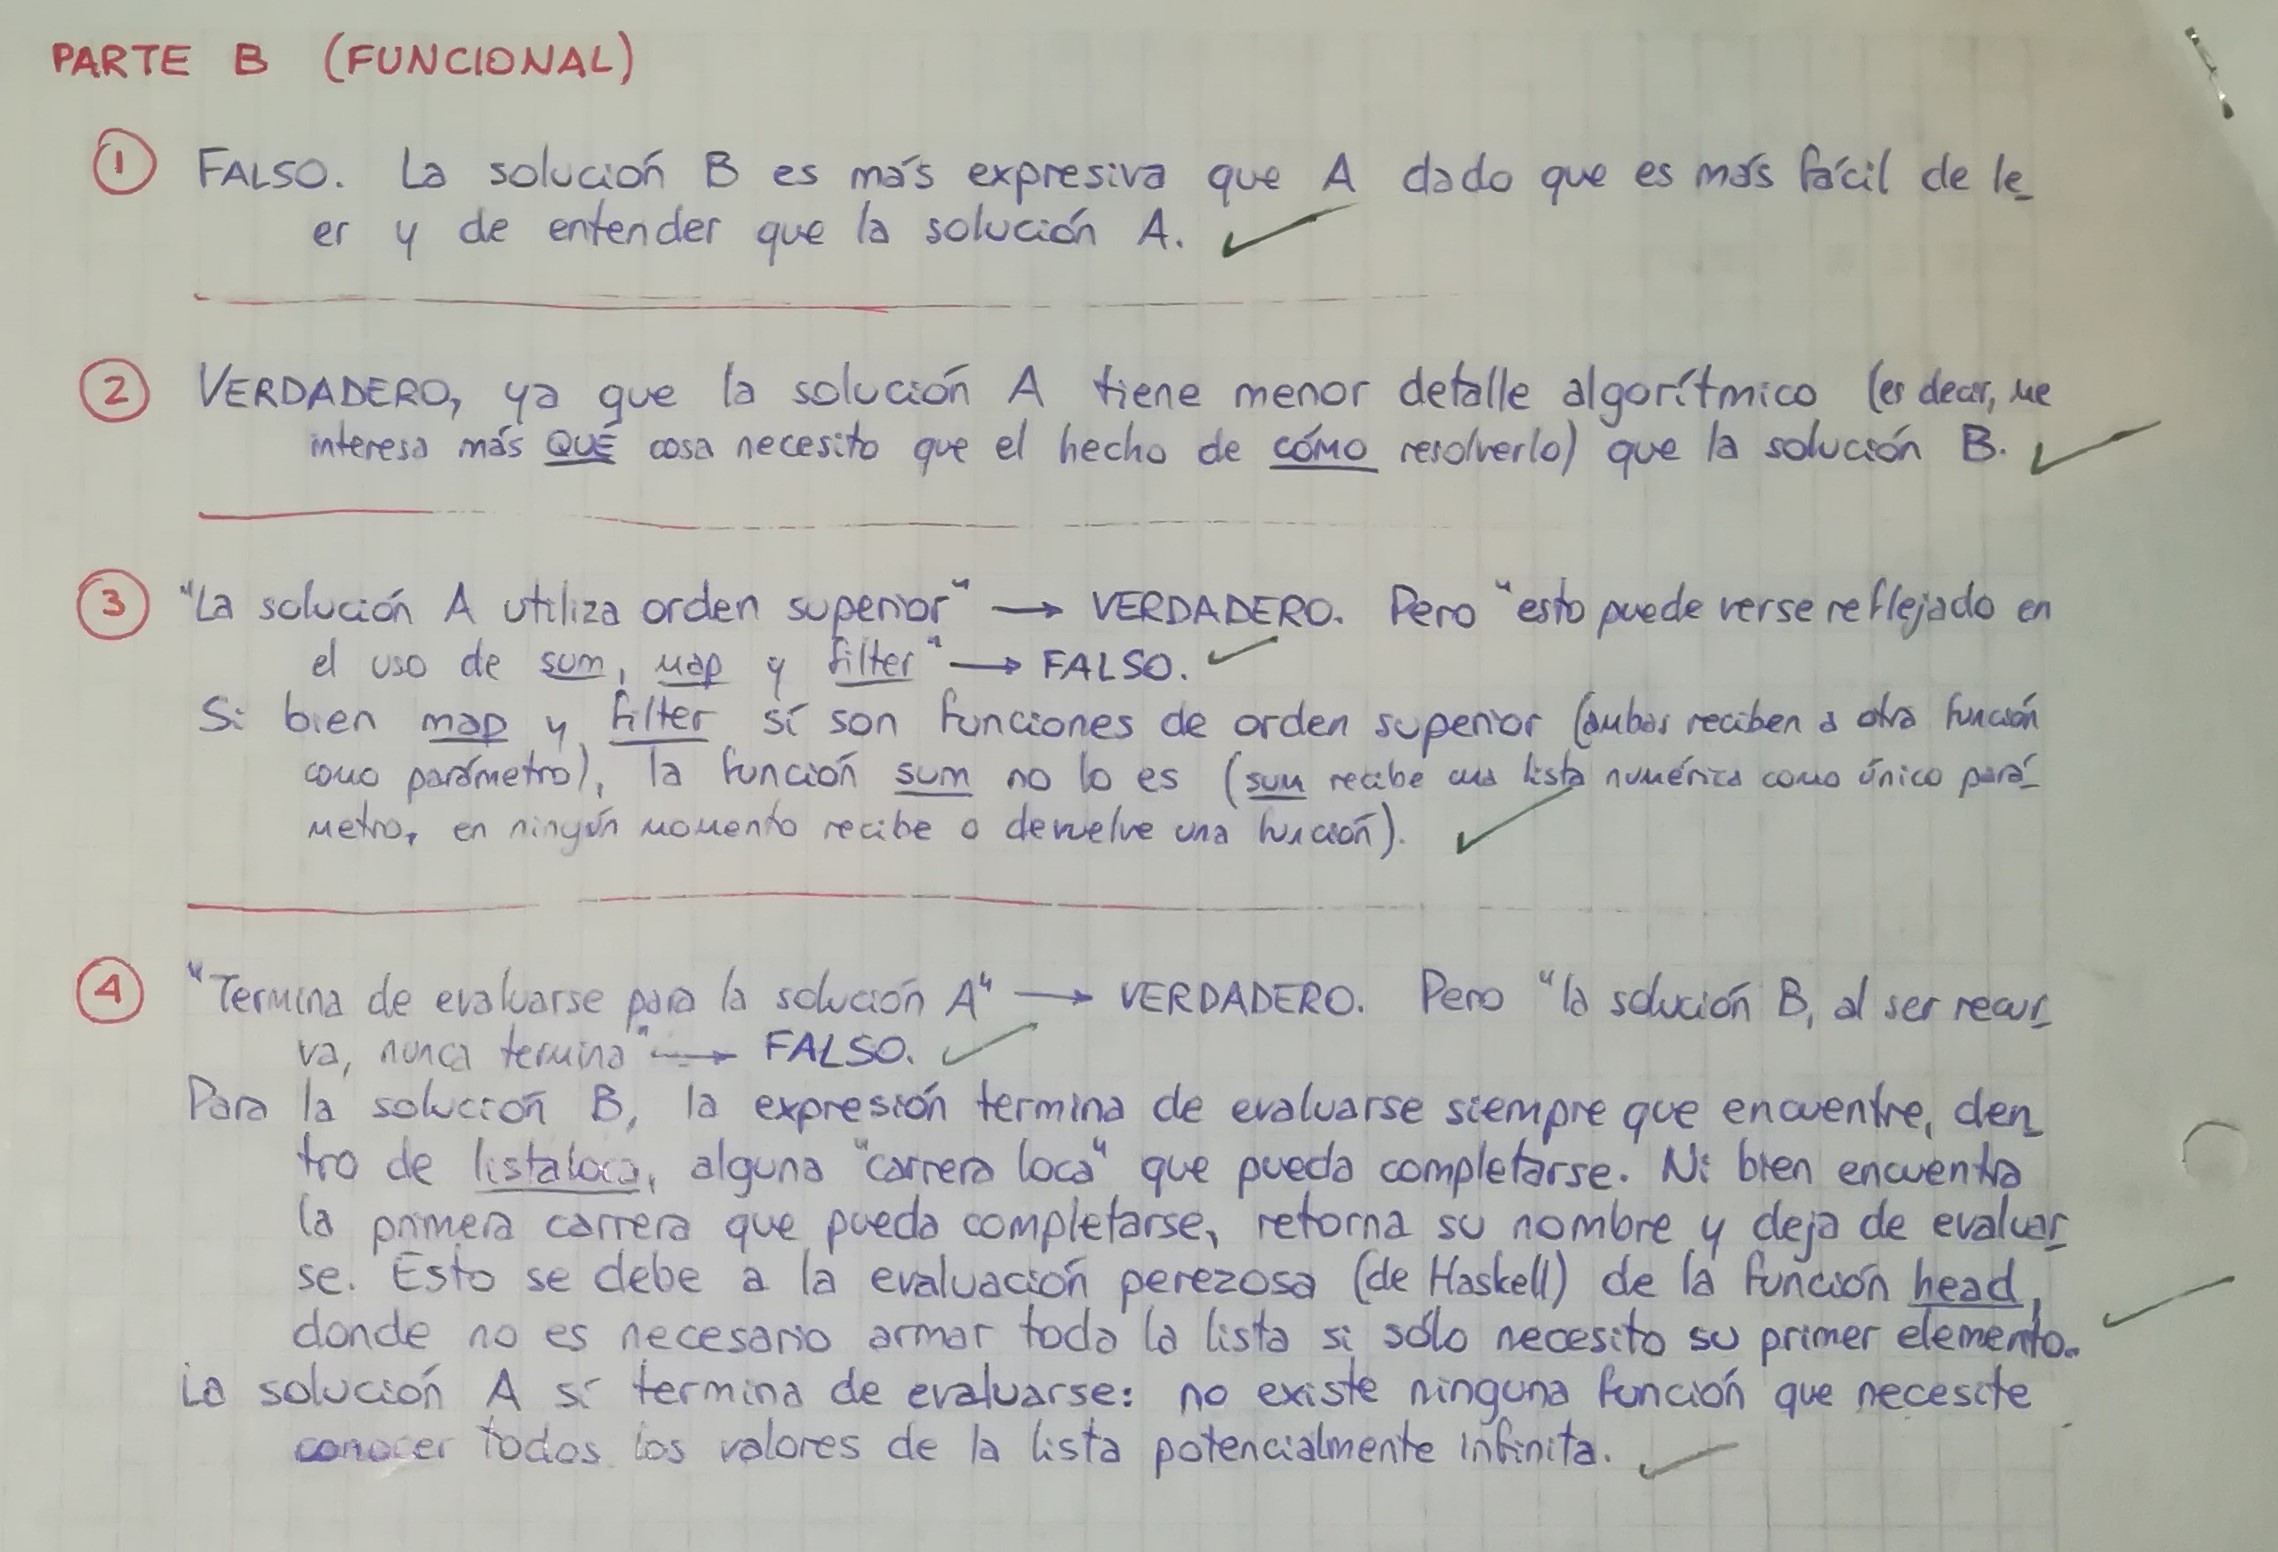 PARTE B (FUNCIONAL)
1 FALSO. La solución B es más expresiva que A dado que es más fácil de le_
er y de entender que la solución A.
2 VERDADERO, ya que la solución A tiene menor detalle algorítmico (es decir, me
interesa más QUÉ cosa necesito que el hecho de CÓMO resolverlo) que la solución B.
3 "La solución A utiliza orden superior" → VERDADERO. Pero "esto puede verse reflejado en
el uso de sum, map y filter" → FALSO.
Si bien map y filter sí son funciones de orden superior (ambas reciben a otra función
como parámetro), la función sum no lo es (sum recibe una lista numérica como único pará_
metro, en ningún momento recibe o devuelve una función).
4 "Termina de evaluarse para la solución A" → VERDADERO. Pero "la solución B, al ser recur_
va, nunca termina" → FALSO.
Para la solución B, la expresión termina de evaluarse siempre que encuentre, den_
tro de listaloca, alguna "carrera loca" que pueda completarse. Ni bien encuentra
la primera carrera que pueda completarse, retorna su nombre y deja de evaluar_
se. Esto se debe a la evaluación perezosa (de Haskell) de la función head,
donde no es necesario armar toda la lista si sólo necesito su primer elemento.
La solución A sí termina de evaluarse: no existe ninguna función que necesite
conocer todos los valores de la lista potencialmente infinita.